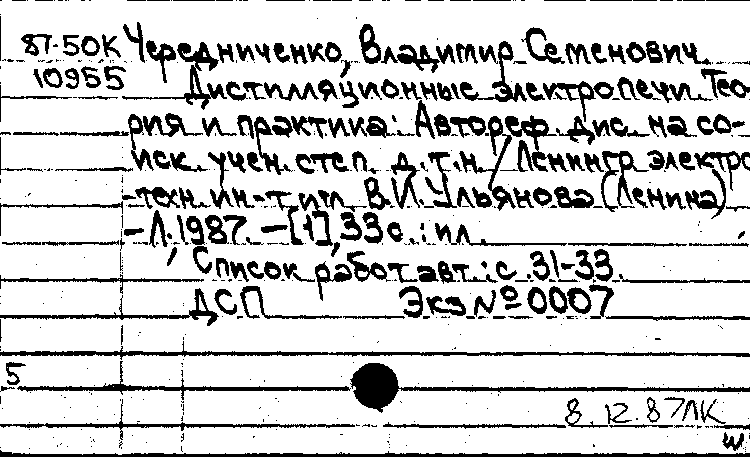 87-50К Чередниченко, Владимир Семенович.
10955 Дистилляционные электропечи. Тео-
рия и практика: Автореф. дис. на со-
иск. учен. степ. д.т.н. / Ленингр. электро-
-техн. ин-т им. В.И. Ульянова (Ленина)
- Л. 1987. - [1], 33 с.: ил.
Список работ авт.: с. 31-33.
ДСП Экз № 0007
5
8.12.87 ЛК
w